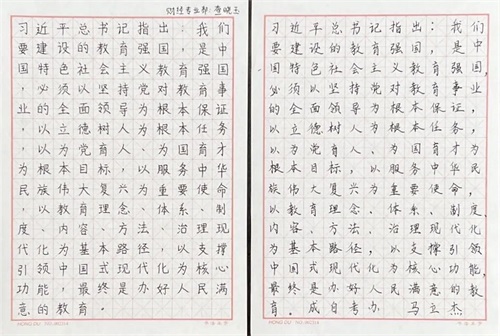 专业部
习近平总书记指出：我们
要建设的教育强国，是中
国特色社会主义教育强国
，必须以坚持党对教育事
业的全面领导为根本保证
，以立德树人为根本任务
，以为党育人、为国育才
为根本目标，以服务中华
民族伟大复兴为重要使命
，以教育理念、体系、制
度、内容、方法、治理现
代化为基本路径，以支撑
引领中国式现代化为核心
功能，最终是办好人民满
意的教育。
习近平总书记指出：我们
要建设的教育强国，是中
国特色社会主义教育强国，
必须以坚持党对教育事业
的全面领导为根本保证，
以立德树人为根本任务，
以为党育人、为国育才为
根本目标，以服务中华民
族伟大复兴为重要使命，
以教育理念、体系、制度、
内容、方法、治理现代化
为基本路径，以支撑引领
中国式现代化为核心功能，
最终是办好人民满意的教
育。成自考办 马立杰